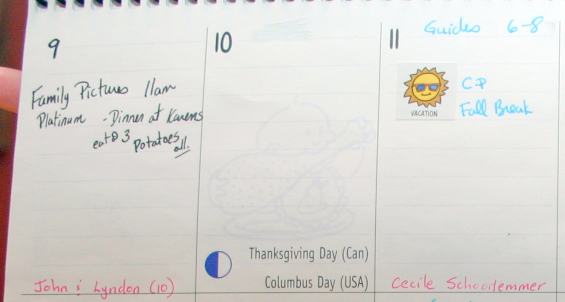 9
Family Pictures 11am
Platinum - Dinner at Karens
eat @ 3 Potatoes
all.
John & Lyndon (10)
10
Thanksgiving Day (Can)
Columbus Day (USA)
11
Guides 6-8
VACATION
CP
Fall Break
Cecile Schoorlemmer